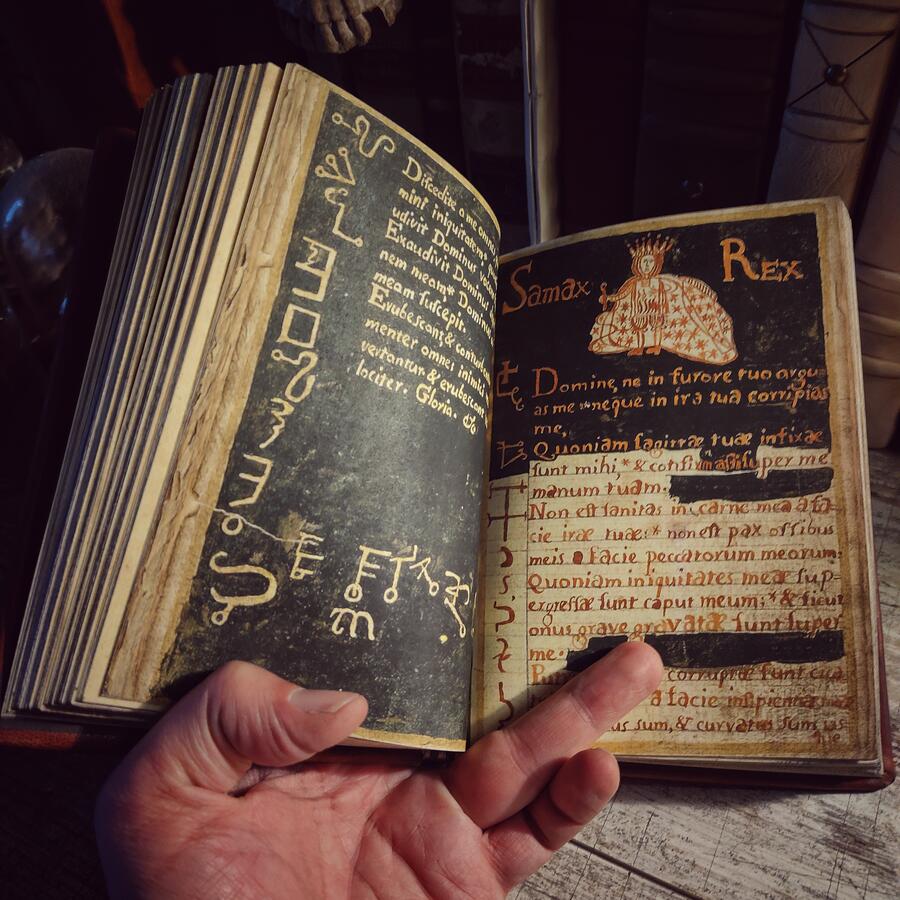 Discedite a me omnes
mini iniquitatem
udivit Dominus
Exaudivit Dominus
nem meam* Dominus
meam suscepit.
Erubescant, &
menter omnes inimici
vertantur & erubescant
lociter. Gloria. &c
Samax Rex
Domine, ne in furore tuo argu-
as me * neque in ira tua corripias
me,
Quoniam sagittæ tuæ infixæ
sunt mihi, * & super me
manum tuam.
Non est sanitas in carne mea a fa-
cie iræ tuæ: * non est pax ossibus
meis a facie peccatorum meorum:
Quoniam iniquitates meæ sup-
ergressæ sunt caput meum; * & sicut
onus grave gravatæ sunt super
me.
corruptæ sunt
a facie insipientiæ
us sum, & curvatus sum us